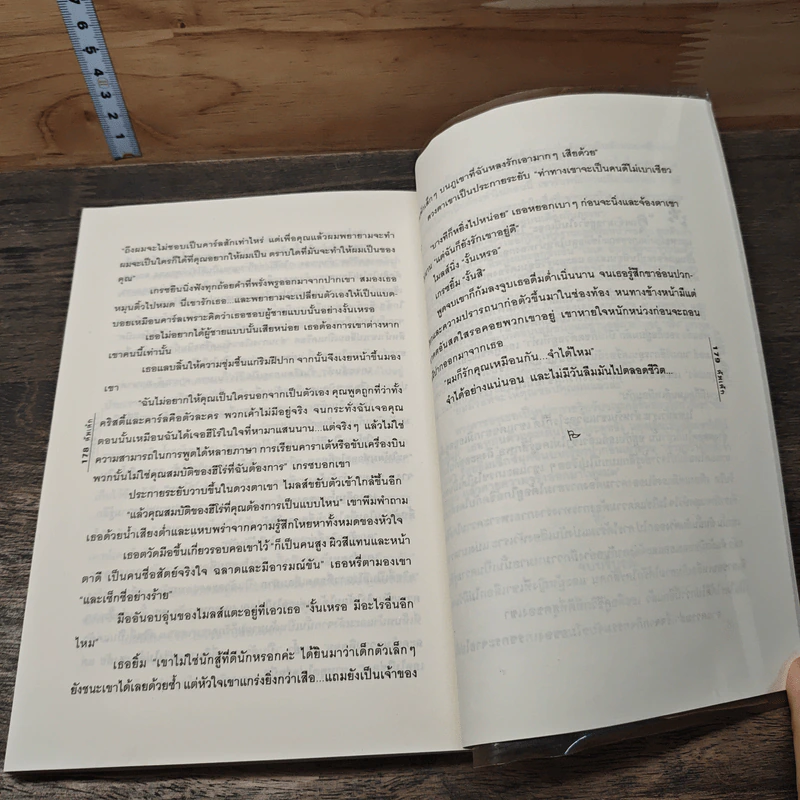 7 6 5 4 3 2 1
"ถึงผมจะไม่ชอบเป็นคาร์ลสักเท่าไหร่ แต่เพื่อคุณแล้วผมพยายามจะทำ
ผมจะเป็นใครก็ได้ที่คุณอยากให้ผมเป็น ตราบใดที่มันจะทำให้ผมเป็นของ
คุณ"
เกรซยืนนิ่งฟังทุกถ้อยคำที่พรั่งพรูออกมาจากปากเขา สมองเธอ
หมุนติ้วไปหมด นี่เขารักเธอ...และพยายามจะเปลี่ยนตัวเองให้เป็นแบด-
บอยเหมือนคาร์ลเพราะคิดว่าเธอชอบผู้ชายแบบนั้นอย่างงั้นเหรอ
เธอไม่อยากได้ผู้ชายแบบนั้นเสียหน่อย เธอต้องการเขาต่างหาก
เขาคนนี้เท่านั้น
เธอแลบลิ้นให้ความชุ่มชื้นแก่ริมฝีปาก จากนั้นจึงเงยหน้าขึ้นมอง
เขา
"ฉันไม่อยากให้คุณเป็นใครนอกจากเป็นตัวเอง คุณพูดถูกที่ว่าทั้ง
คริสตี้และคาร์ลคือตัวละคร พวกเค้าไม่มีอยู่จริง จนกระทั่งฉันเจอคุณ
ตอนนั้นเหมือนฉันได้เจอฮีโร่ในใจที่หามาแสนนาน...แต่จริงๆ แล้วไม่ใช่
ความสามารถในการพูดได้หลายภาษา การเรียนคาราเต้หรือขับเครื่องบิน
พวกนั้นไม่ใช่คุณสมบัติของฮีโร่ที่ฉันต้องการ" เกรซบอกเขา
ประกายระยับวาบขึ้นในดวงตาเขา ไมลส์ขยับตัวเข้าใกล้ขึ้นอีก
"แล้วคุณสมบัติของฮีโร่ที่คุณต้องการเป็นแบบไหน" เขาพึมพำถาม
เธอด้วยน้ำเสียงต่ำและแหบพร่าจากความรู้สึกโหยหาทั้งหมดของหัวใจ
เธอตวัดมือขึ้นเกี่ยวรอบคอเขาไว้ "ก็เป็นคนสูง ผิวสีแทนและหน้า
ตาดี เป็นคนซื่อสัตย์จริงใจ ฉลาดและมีอารมณ์ขัน" เธอหรี่ตามองเขา
"และเซ็กซี่อย่างร้าย"
มืออันอบอุ่นของไมลส์แตะอยู่ที่เอวเธอ "งั้นเหรอ มีอะไรอื่นอีก
ไหม"
เธอยิ้ม "เขาไม่ใช่นักสู้ที่ดีนักหรอกค่ะ ได้ยินมาว่าเด็กตัวเล็กๆ
ยังชนะเขาได้เลยด้วยซ้ำ แต่หัวใจเขาแกร่งยิ่งกว่าเสือ...แถมยังเป็นเจ้าของ
178
เล็กๆ บนภูเขาที่ฉันหลงรักเอามากๆ เสียด้วย"
ดวงตาเขาเป็นประกายระยับ "ท่าทางเขาจะเป็นคนดีไม่เบาเชียว
"บางทีก็หยิ่งไปหน่อย" เธอหยอกเบาๆ ก่อนจะนิ่งและจ้องตาเขา
"แต่ฉันก็ยังรักเขาอยู่ดี"
ไมลส์นิ่ง "งั้นเหรอ"
เกรซยิ้ม "งั้นสิ"
พูดจบเขาก็ก้มลงจูบเธอดื่มด่ำเนิ่นนาน จนเธอรู้สึกขาอ่อนปวก-
และความปรารถนาก่อตัวขึ้นมาในช่องท้อง หนทางข้างหน้ามีแต่
อันสดใสรอคอยพวกเขาอยู่ เขาหายใจหนักหน่วงก่อนจะถอน
ออกมาจากเธอ
"ผมก็รักคุณเหมือนกัน...จำได้ไหม"
จำได้อย่างแน่นอน และไม่มีวันลืมมันไปตลอดชีวิต...
179